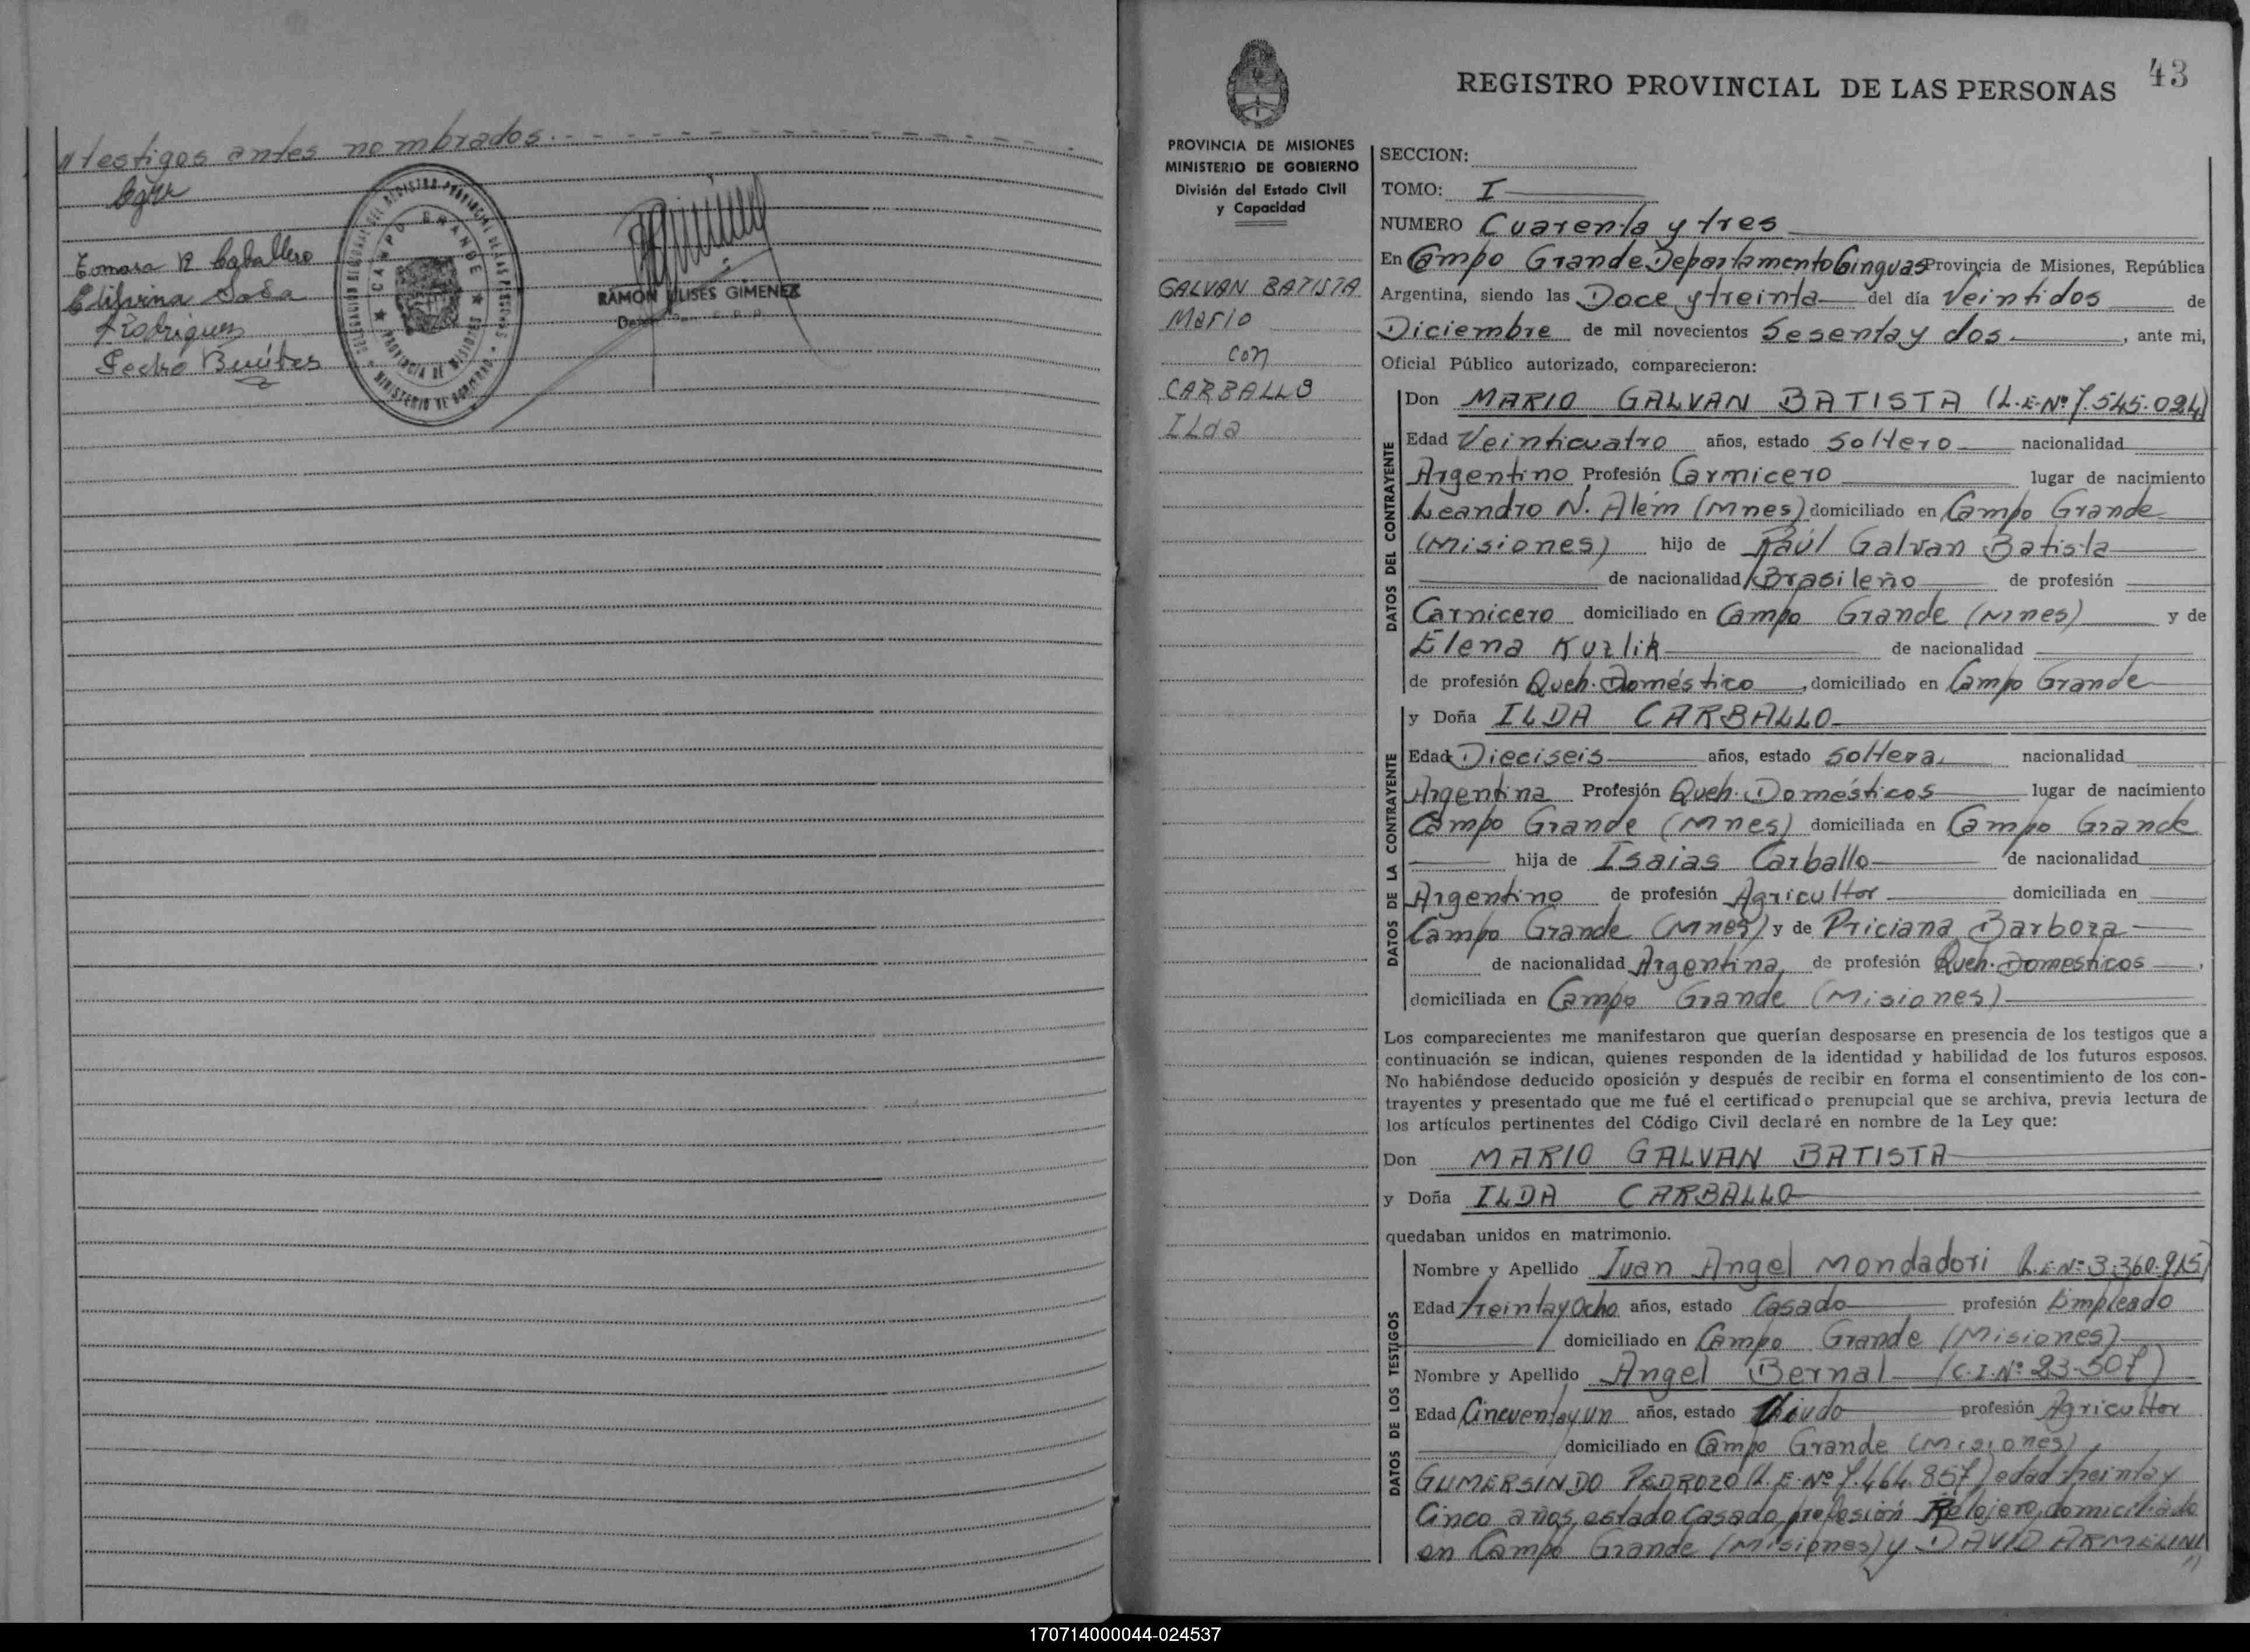 // testigos antes nombrados
Tomasa R Caballero
Rodriguez
Pedro Benítes
CAMPO GRANDE
PROVINCIA DE MISIONES
MINISTERIO DE GOBIERNO
RAMON ULISES GIMENEZ
43
REGISTRO PROVINCIAL DE LAS PERSONAS
PROVINCIA DE MISIONES
MINISTERIO DE GOBIERNO
División del Estado Civil
y Capacidad
GALVAN BATISTA
Mario
con
CARBALLO
ILda
SECCION:
TOMO: I
NUMERO Cuarenta y tres
En Campo Grande Departamento Cainguas Provincia de Misiones, República
Argentina, siendo las Doce y treinta del día Veintidos de
Diciembre de mil novecientos Sesenta y dos, ante mi,
Oficial Público autorizado, comparecieron:
DATOS DEL CONTRAYENTE
Don MARIO GALVAN BATISTA (L.E.Nº 7.545.024)
Edad Veinticuatro años, estado Soltero nacionalidad
Argentino Profesión Carmicero lugar de nacimiento
Leandro N. Além (Mnes) domiciliado en Campo Grande
(Misiones) hijo de Raúl Galvan Batista
de nacionalidad Brasileño de profesión
Carnicero domiciliado en Campo Grande (Mnes) y de
Elena Kuzlik de nacionalidad
de profesión Queh. Doméstico, domiciliado en Campo Grande
DATOS DE LA CONTRAYENTE
y Doña ILDA CARBALLO
Edad Dieciseis años, estado soltera, nacionalidad
Argentina Profesión Queh. Domésticos lugar de nacimiento
Campo Grande (Mnes) domiciliada en Campo Grande
hija de Isaias Carballo de nacionalidad
Argentino de profesión Agricultor domiciliada en
Campo Grande (Mnes) y de Priciana Barboza
de nacionalidad Argentina, de profesión Queh. Domesticos,
domiciliada en Campo Grande (Misiones)
Los comparecientes me manifestaron que querían desposarse en presencia de los testigos que a
continuación se indican, quienes responden de la identidad y habilidad de los futuros esposos.
No habiéndose deducido oposición y después de recibir en forma el consentimiento de los con-
trayentes y presentado que me fué el certificado prenupcial que se archiva, previa lectura de
los artículos pertinentes del Código Civil declaré en nombre de la Ley que:
Don MARIO GALVAN BATISTA
y Doña ILDA CARBALLO
quedaban unidos en matrimonio.
DATOS DE LOS TESTIGOS
Nombre y Apellido Juan Angel Mondadori L.E.Nº 3.360.915)
Edad Treinta y Ocho años, estado Casado profesión Empleado
domiciliado en Campo Grande (Misiones)
Nombre y Apellido Angel Bernal (C.I.Nº 23.507)
Edad Cincuenta y un años, estado Viudo profesión Agricultor
domiciliado en Campo Grande (Misiones),
GUMERSINDO PEDROZO (L.E.Nº 7.464.857) edad treinta y
Cinco años, estado Casado, profesión Relojero, domiciliado
en Campo Grande (Misiones) y DAVID ARMELINI
//
170714000044-024537